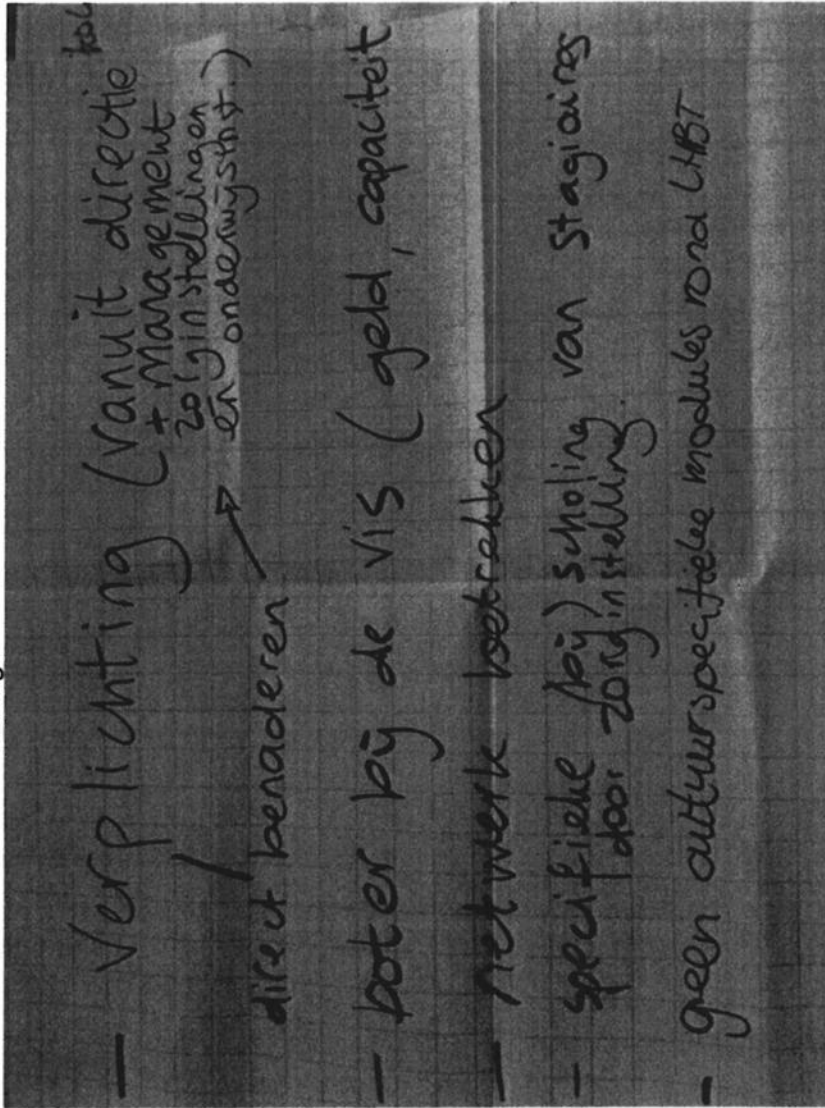 - Verplichting (vanuit directie
+ management
zorginstellingen
én onderwijsinst.)
direct benaderen
- boter bij de vis (geld, capaciteit
- netwerk betrekken
- specifieke (bij)scholing van stagiaires
door zorginstelling.
- geen cultuurspecifieke modules rond LHBT